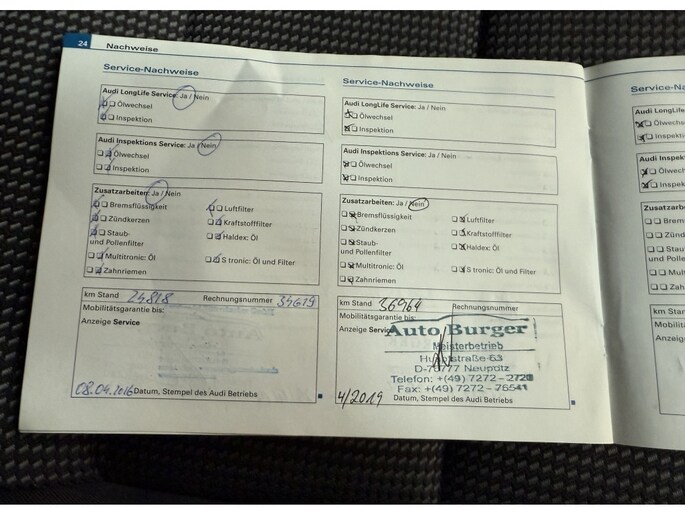 24 Nachweise
Service-Nachweise
Audi LongLife Service: Ja / Nein
Ölwechsel
Inspektion
Audi Inspektions Service: Ja / Nein
Ölwechsel
Inspektion
Zusatzarbeiten: Ja / Nein
Bremsflüssigkeit Luftfilter
Zündkerzen Kraftstofffilter
Staub- Haldex: Öl
und Pollenfilter
Multitronic: Öl S tronic: Öl und Filter
Zahnriemen
km Stand 24818 Rechnungsnummer 34619
Mobilitätsgarantie bis:
Anzeige Service
08.04.2016 Datum, Stempel des Audi Betriebs
Service-Nachweise
Audi LongLife Service: Ja / Nein
Ölwechsel
Inspektion
Audi Inspektions Service: Ja / Nein
Ölwechsel
Inspektion
Zusatzarbeiten: Ja / Nein
Bremsflüssigkeit Luftfilter
Zündkerzen Kraftstofffilter
Staub- Haldex: Öl
und Pollenfilter
Multitronic: Öl S tronic: Öl und Filter
Zahnriemen
km Stand 36964 Rechnungsnummer
Mobilitätsgarantie bis:
Anzeige Service
Auto Burger
Meisterbetrieb
D-76777 Neupotz
Telefon: +(49) 7272-2720
Fax: +(49) 7272-76541
4/2019 Datum, Stempel des Audi Betriebs
Service-N
Audi LongLife
Ölwechs
Inspekti
Audi Inspekt
Ölwechs
Inspekti
Zusatzarb
Brems
Zündk
Staub
und Polle
Multit
Zahn
km Stand
Mobilität
Anzeige